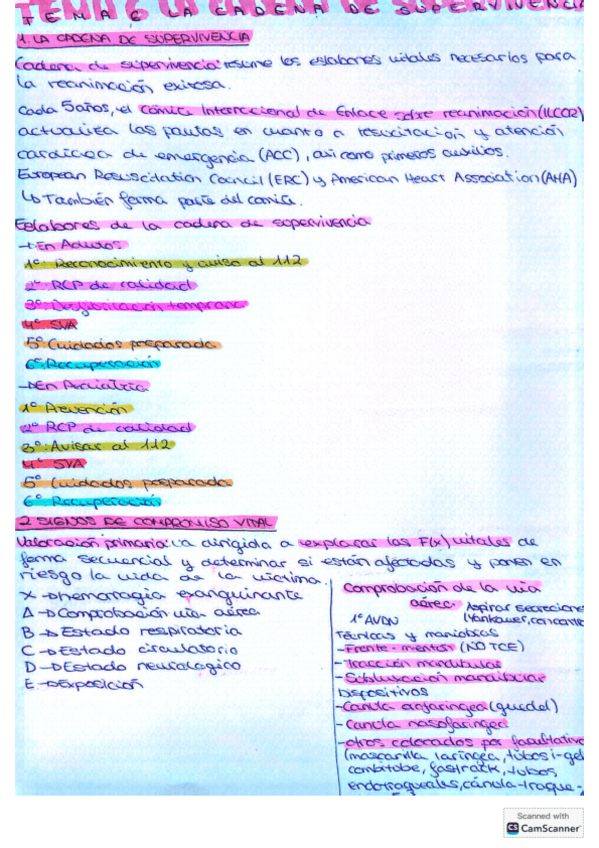 TEMA 6 LA CADENA DE SUPERVIVENCIA
1. LA CADENA DE SUPERVIVENCIA
Cadena de supervivencia: resume los eslabones vitales necesarios para
la reanimación exitosa.
Cada 5 años, el Comité Internacional de Enlace sobre reanimación (ILCOR)
actualiza las pautas en cuanto a resucitación y atención
cardíaca de emergencia (ACC), así como primeros auxilios.
European Resuscitation Council (ERC) y American Heart Association (AHA)
↳ También forma parte del comité.
Eslabones de la cadena de supervivencia
→ En Adultos
1º: Reconocimiento y aviso al 112
2º RCP de calidad
3º: Desfibrilación temprana
4º SVA
5º Cuidados posparada
6º: Recuperación
→ En
1º Prevención
2º RCP de calidad
3º: Avisar al 112
4º SVA
5º Cuidados posparada
6º Recuperación
2 SIGNOS DE COMPROMISO VITAL
Valoración primaria: va dirigida a explorar las F(x) vitales de
forma secuencial y determinar si están afectadas y ponen en
riesgo la vida de la víctima.
X → hemorragia exanguinante
A → Comprobación vía aérea
B → Estado respiratorio
C → Estado circulatorio
D → Estado neurológico
E → Exposición
Comprobación de la vía
aérea
Aspirar secreciones
1º AVDN
(Yankauer,
Técnicas y maniobras
- Frente-mentón (NO TCE)
- Tracción mandibular
- Subluxación mandibular
Dispositivos
- Canula orofaríngea (guedel)
- Canula nasofaríngea
- otros colocados por facultativo
(mascarilla laríngea, tubos i-gel
combitube, fastrack, tubos
endotraqueales, cánula-traque-
Scanned with
CS CamScanner